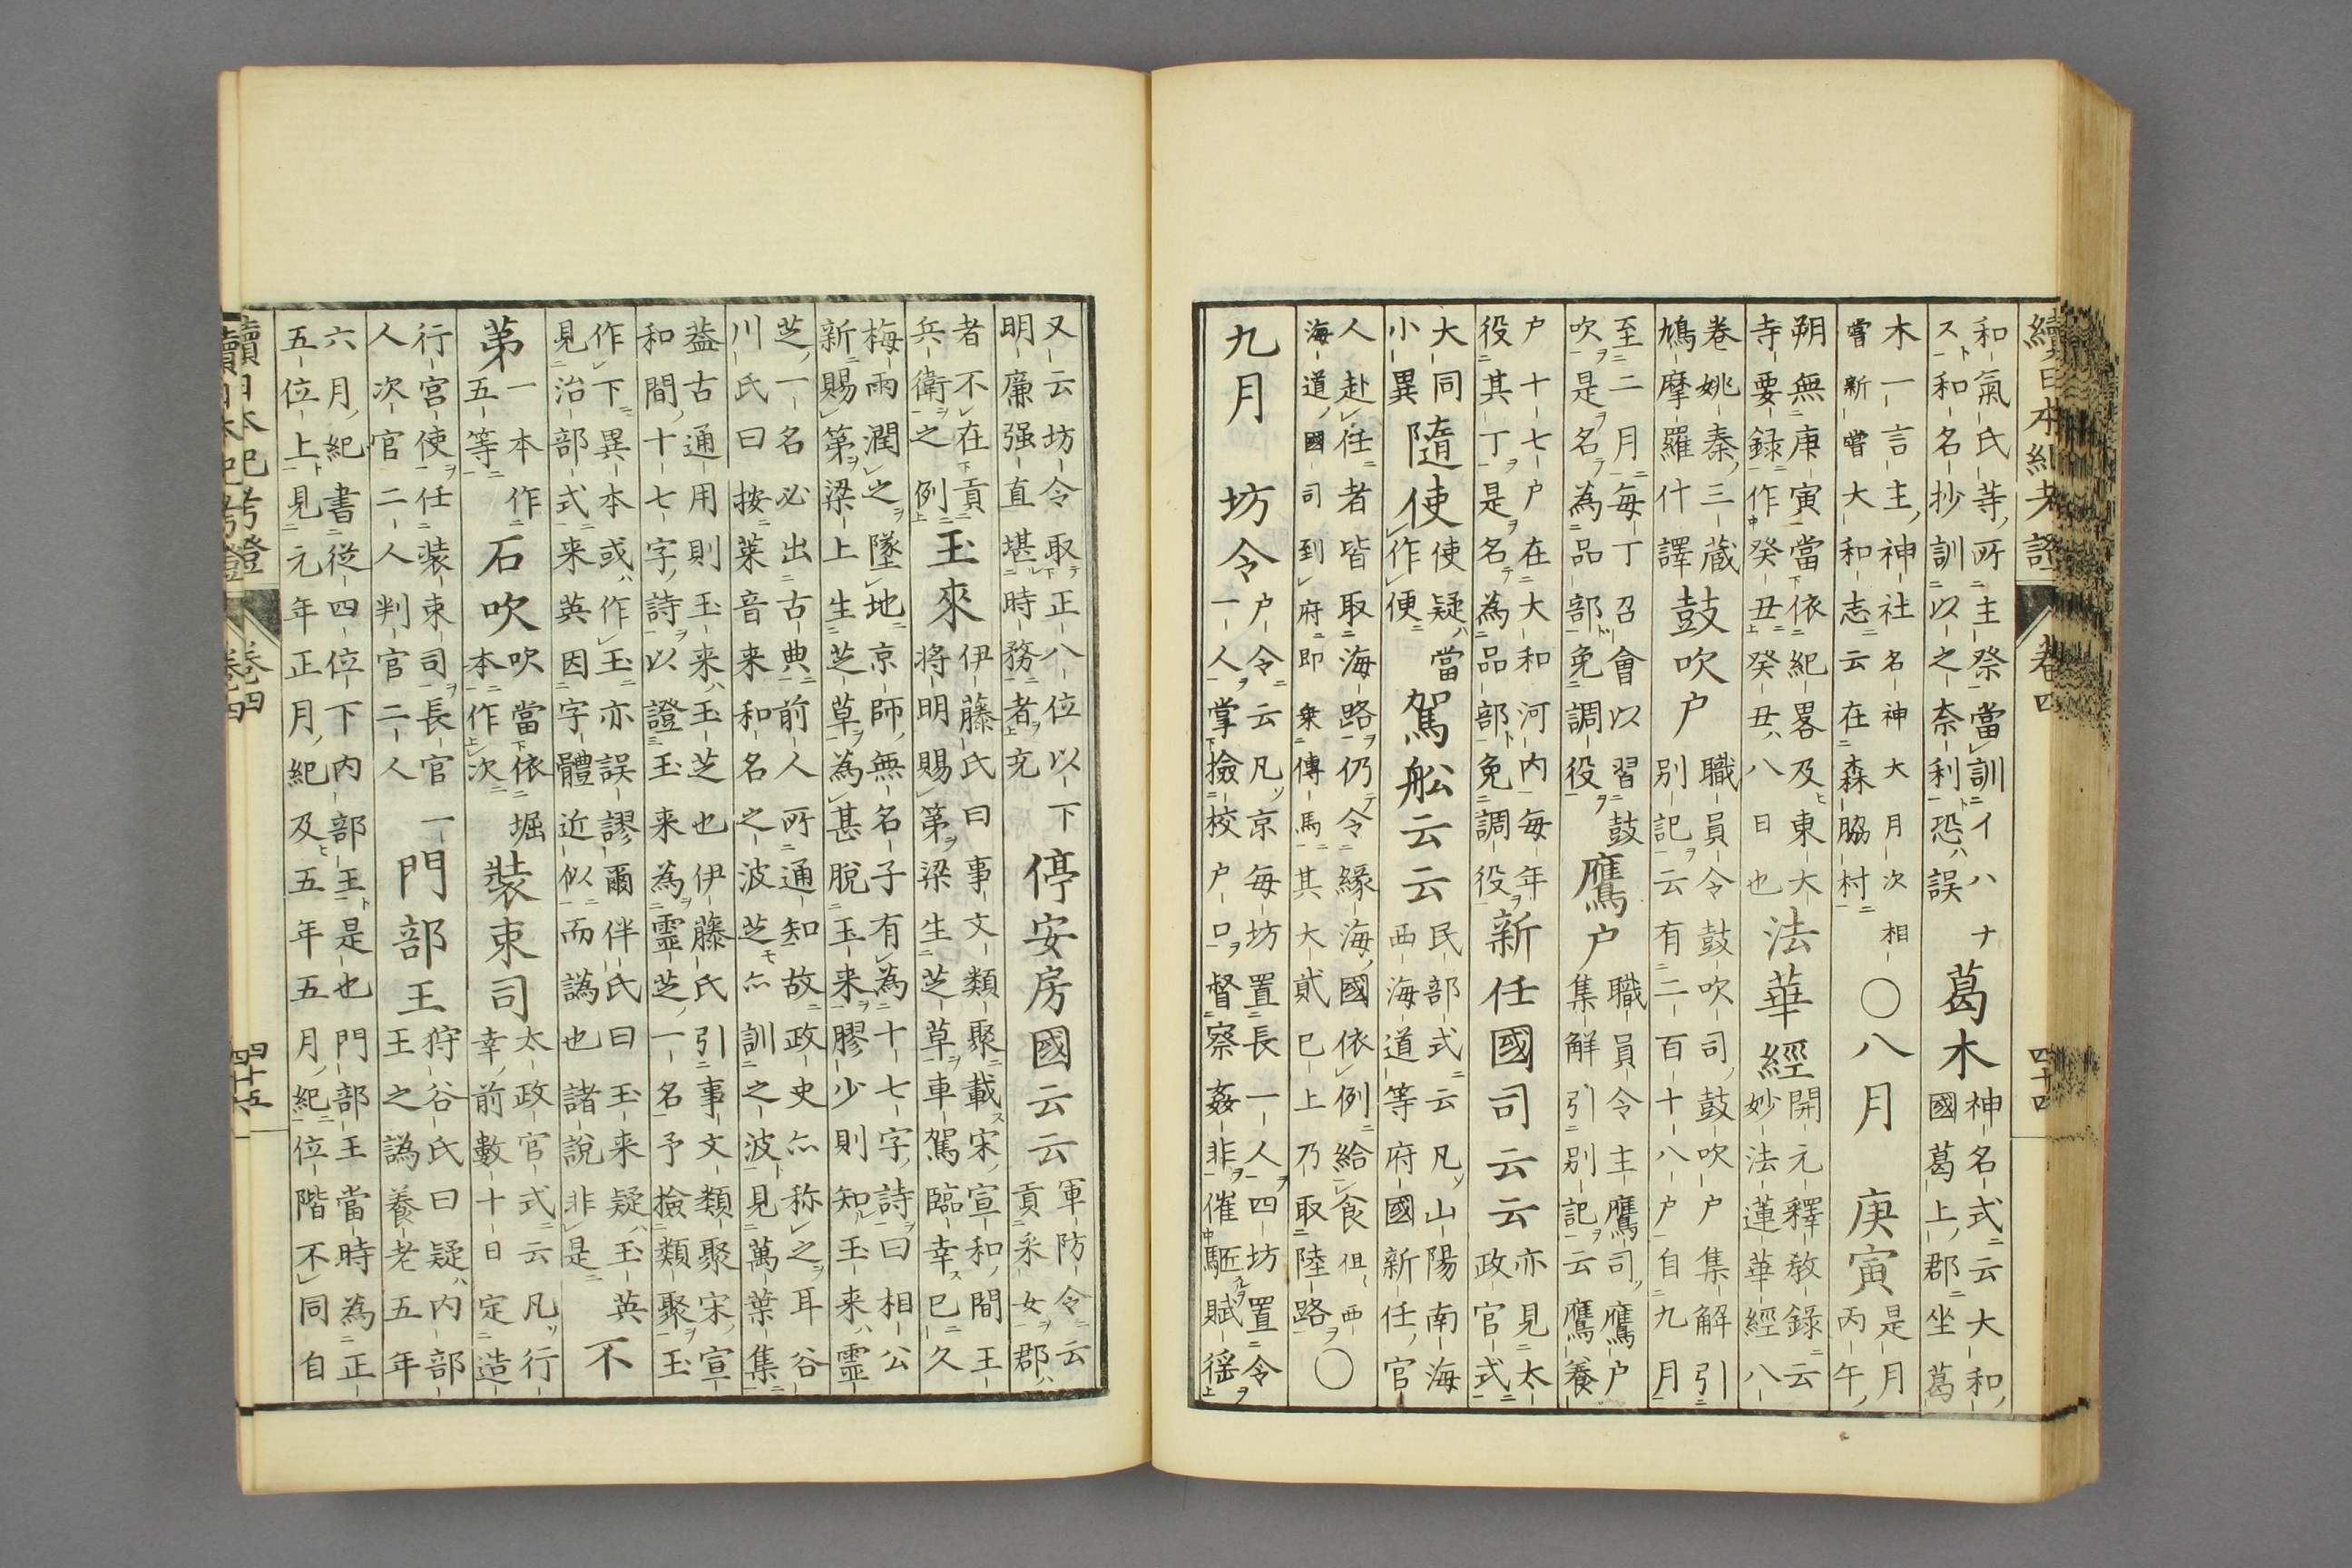 續日本紀考證 卷四 四十四
和氣氏等所主祭當訓イハナ
スト和名抄訓以之奈利恐誤
葛木
神名式云大和
國葛上郡坐葛
木一言主神社名神大月次相
嘗新嘗大和志云在森脇村
〇八月 庚寅
是月
丙午
朔無庚寅當依紀畧及東大
寺要録作癸丑癸丑八日也
法華經
開元釋敎錄云
妙法蓮華經八
卷姚秦三蔵
鳩摩羅什譯
鼓吹户
職員令鼓吹司鼓吹户集解引
别記云有二百十八户自九月
至二月每丁召會以習鼓
吹是名為品部免調役
鷹户
職員令主鷹司鷹户
集解引别記云鷹養
户十七户在大和河内每年
役其丁是名為品部免調役
新任國司云云
亦見太
政官式
大同
小異
隨使
使疑當
作便
駕舩云云
民部式云凡山陽南海
西海道等府國新任官
人赴任者皆取海路仍令緣海國依例給食但西
海道國司到府即乗傳馬其大貳已上乃取陸路
〇
九月 坊令
户令云凡京每坊置長一人四坊置令
一人掌撿校户口督察姦非催駈賦徭
又云坊令取正八位以下
明廉强直堪時務者充
停安房國云云
軍防令云
貢采女郡
者不在貢
兵衛之例
玉來
伊藤氏曰事文類聚載宋宣和間王
將明賜第梁生芝草車駕臨幸已久
梅雨潤之墜地京師無名子有為十七字詩曰相公
新賜第梁上生芝草為甚脱玉来膠少則知玉来靈
芝一名必出古典前人所通知故政史尒称之耳谷
川氏曰按萊音来和名之波芝尒訓之波見萬葉集
葢古通用則玉来玉芝也伊藤氏引事文類聚宋宣
和間十七字詩以證玉来為靈芝一名予撿類聚玉
作下異本或作玉亦誤謬爾伴氏曰玉来疑玉英
見治部式来英因字體近似而譌也諸說非是
不
第
一本作
五等
石吹
吹當依堀
本作次
裝束司
太政官式云凡行
幸前數十日定造
行宮使任装束司長官一
人次官二人判官二人
門部王
狩谷氏曰疑内部
王之譌養老五年
六月紀書從四位下内部王是也門部王當時為正
五位上見元年正月紀及五年五月紀位階不同自
續日本紀考證 卷四 四十五